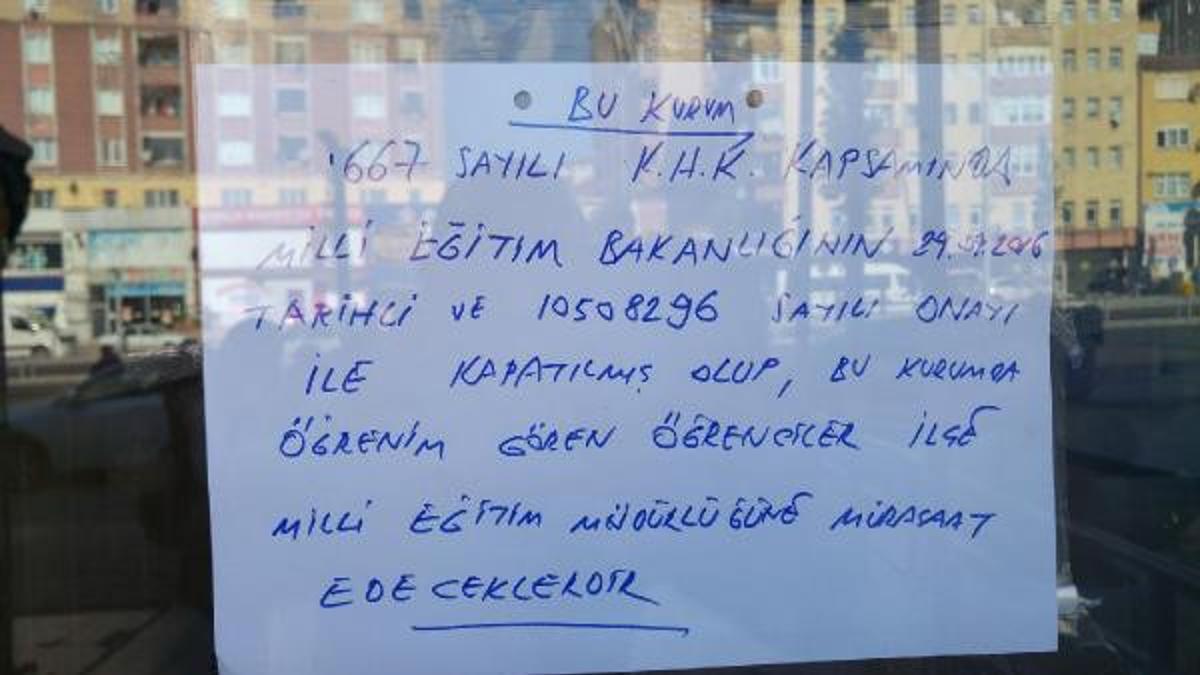 BU KURUM
667 SAYILI K.H.K. KAPSAMINDA
MİLLİ EĞİTİM BAKANLIĞININ 29.07.2016
TARİHLİ VE 10508296 SAYILI ONAYI
İLE KAPATILMIŞ OLUP, BU KURUMDA
ÖĞRENİM GÖREN ÖĞRENCİLER İLÇE
MİLLİ EĞİTİM MÜDÜRLÜĞÜNE MÜRACAAT
EDECEKLERDİR